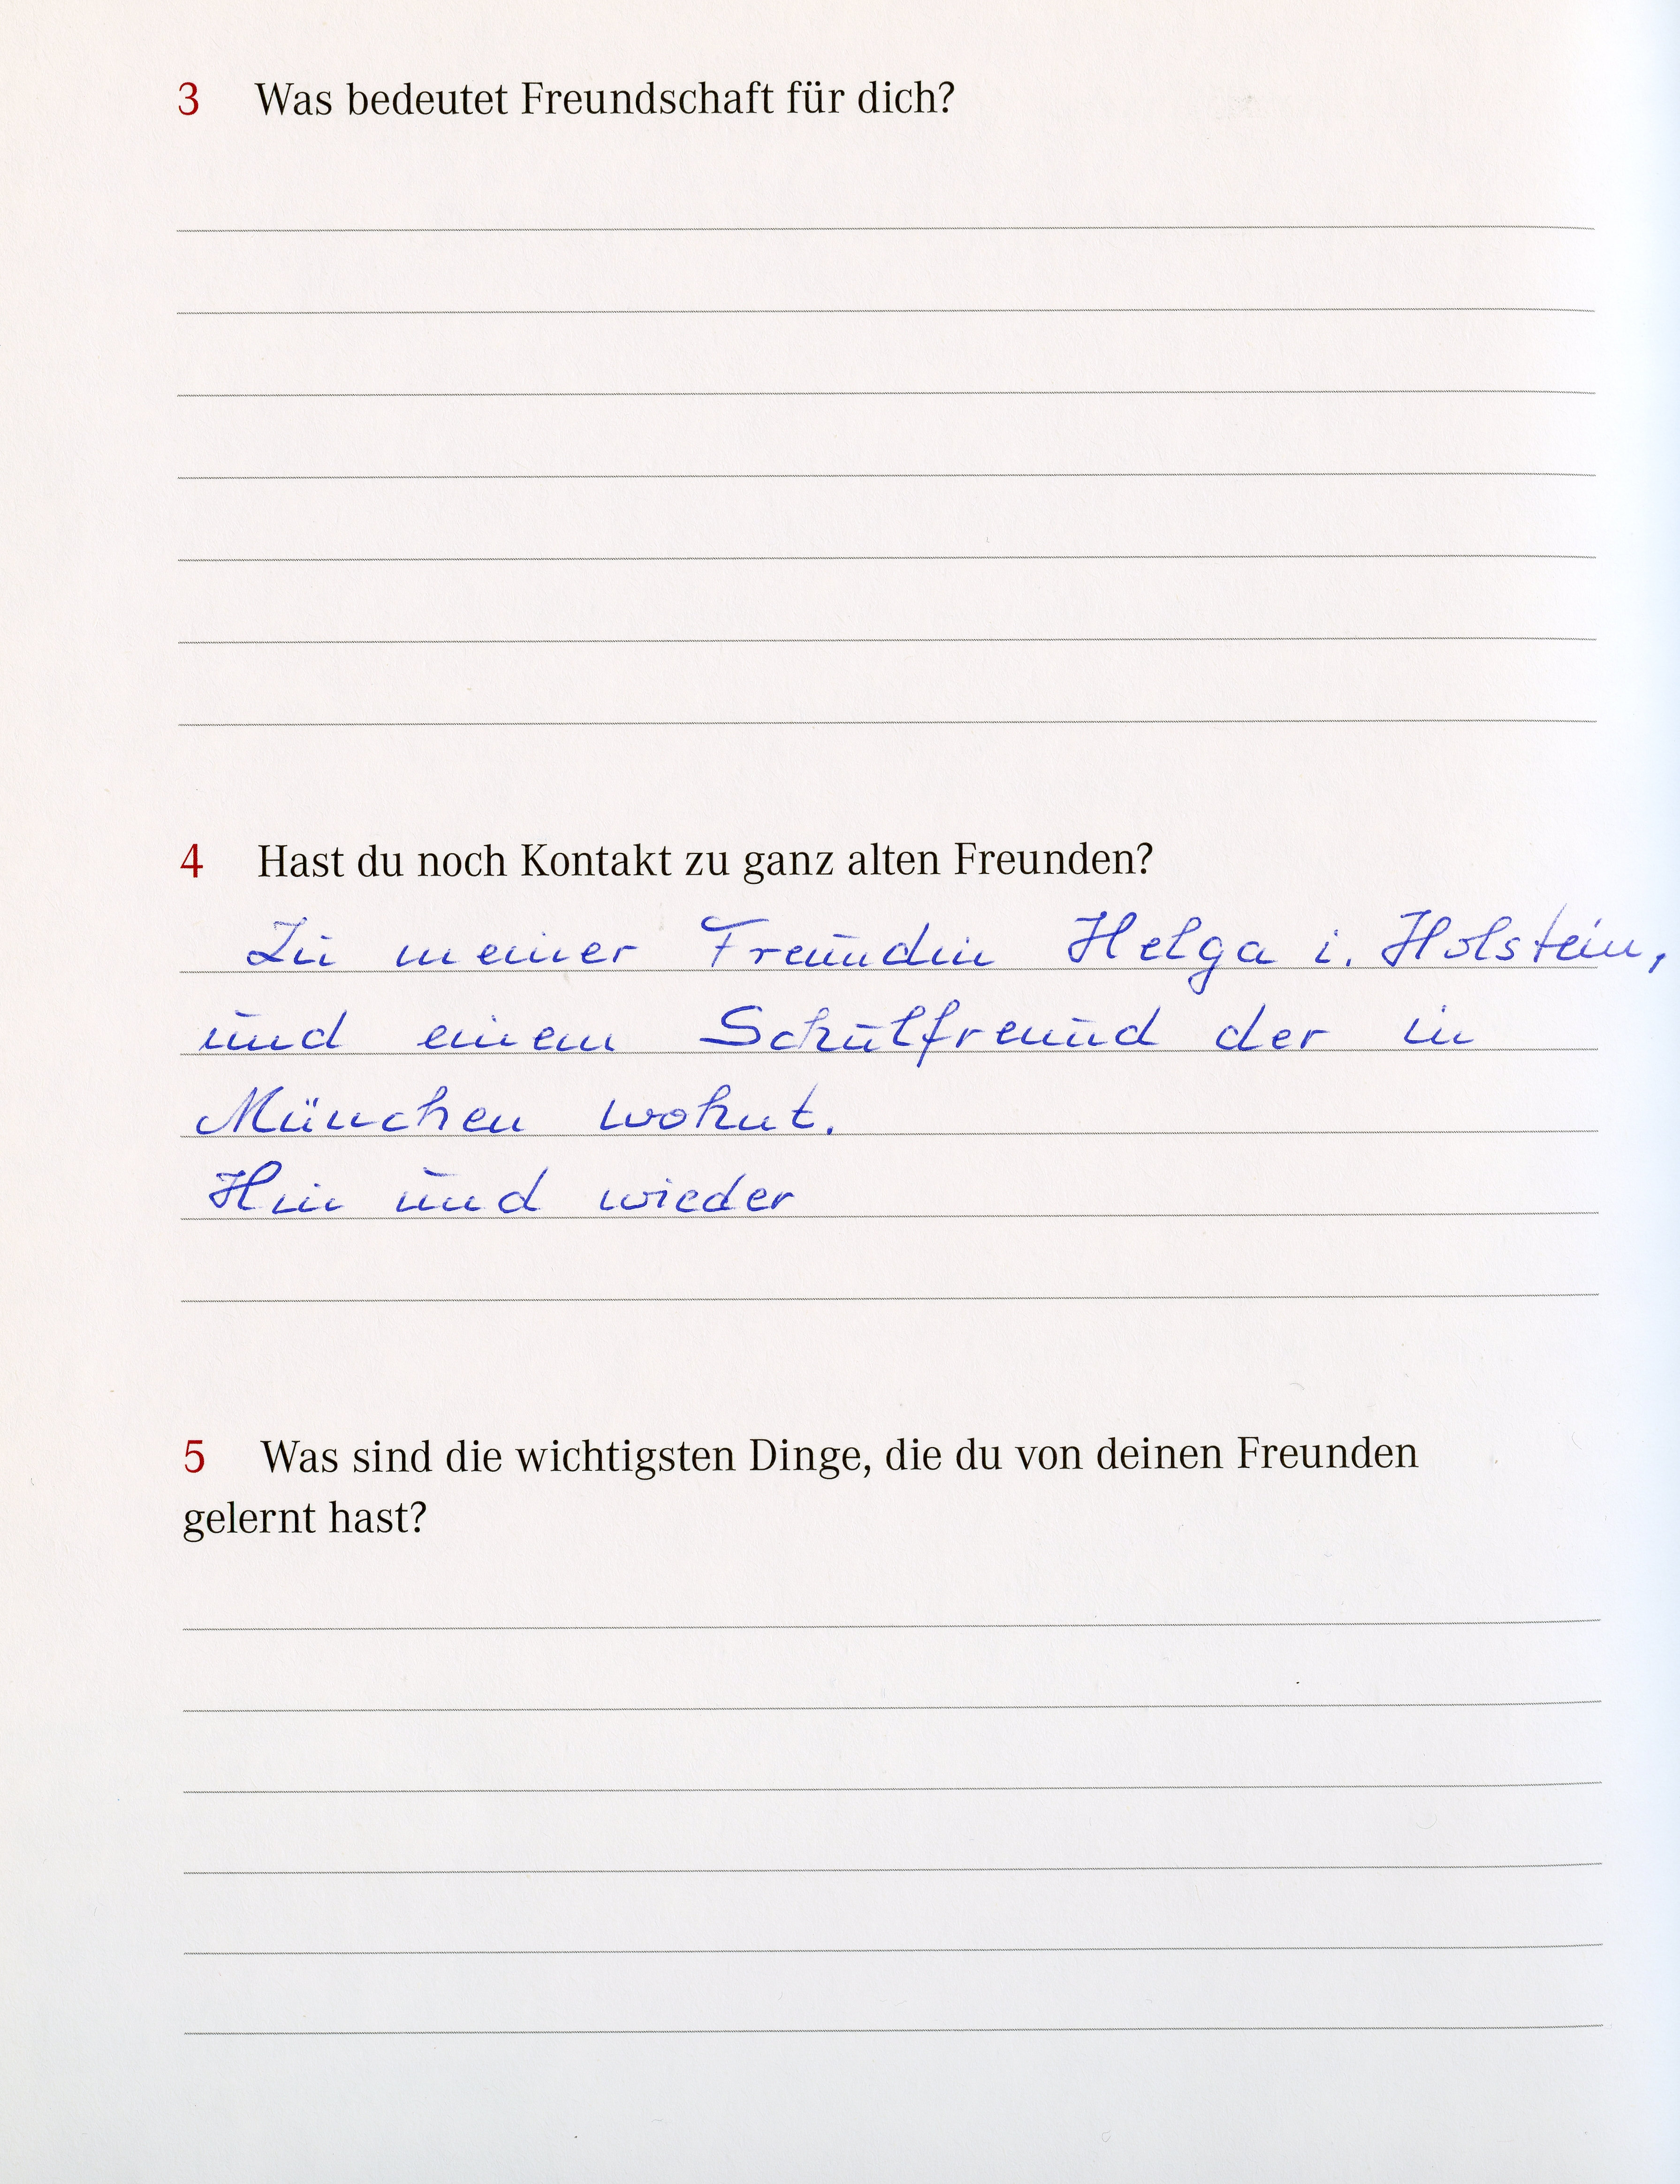 3 Was bedeutet Freundschaft für dich?
4 Hast du noch Kontakt zu ganz alten Freunden?
Zu meiner Freundin Helga i. Holstein,
und einem Schulfreund der in
München wohnt.
Hin und wieder
5 Was sind die wichtigsten Dinge, die du von deinen Freunden
gelernt hast?